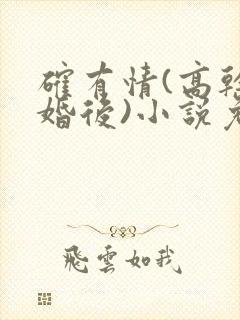 確有情(高幹
婚後)小說
飛雲如我